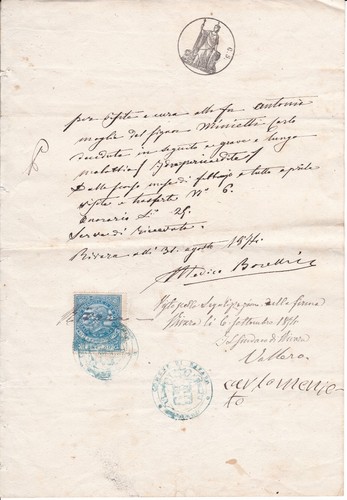 per visite e cura alla fu Antonia
moglie del signor Minietti Carlo
deceduta in seguito a grave e lunga
malattia (Idropericardite)
Dalla fine mese di febbrajo a tutto aprile
visite e trasporte N° 6.
Onorario L. 25.
Serve di ricevuta.
Rivara alli 31. agosto 1874.
Medico Borelli
Visto per la legalizzazione della firma
Rivara li 6 Settembre 1874
Il Sindaco di Rivara
Vallero
carlo menie
to